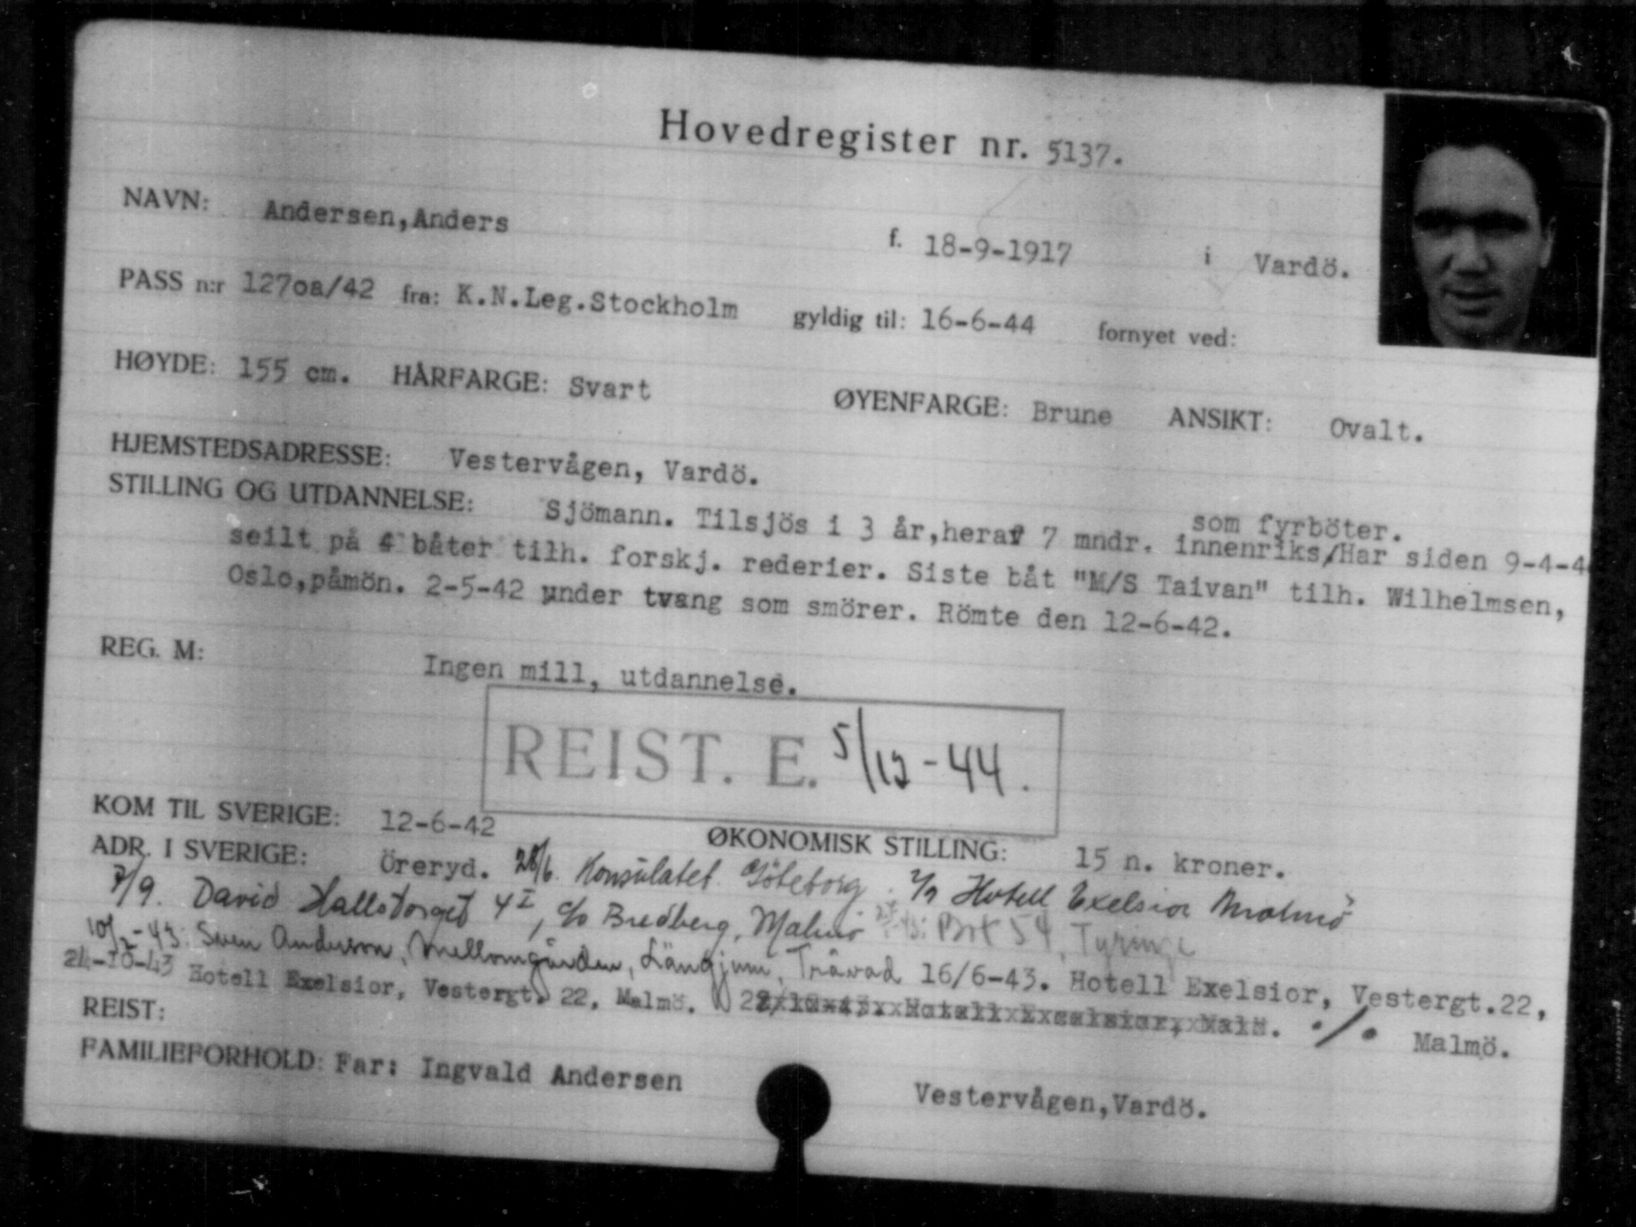 Hovedregister nr. 5137.
NAVN: Andersen,Anders f. 18-9-1917 i Vardö.
PASS n:r 127oa/42 fra: K.N.Leg.Stockholm gyldig til: 16-6-44 fornyet ved:
HØYDE: 155 cm. HÅRFARGE: Svart ØYENFARGE: Brune ANSIKT: Ovalt.
HJEMSTEDSADRESSE: Vestervågen, Vardö.
som fyrböter.
STILLING OG UTDANNELSE: Sjömann. Tilsjös i 3 år,herav 7 mndr. innenriks/Har siden 9-4-4
seilt på 4 båter tilh. forskj. rederier. Siste båt "M/S Taivan" tilh. Wilhelmsen,
Oslo,påmön. 2-5-42 under tvang som smörer. Römte den 12-6-42.
REG. M: Ingen mill, utdannelse.
REIST. E. 5/12-44.
KOM TIL SVERIGE: 12-6-42 ØKONOMISK STILLING: 15 n. kroner.
ADR. I SVERIGE: Öreryd. 28/6 Konsulatet Göteborg. Hotell Exelsior Malmö
7/9. David Hallstorget 4 I, c/o Bredberg, Malmö 54, Tyringe
10/2-43: Sven Anderson, Mellomgården, Längjum, Tråvad 16/6-43. Hotell Exelsior, Vestergt.22,
24-10-43 Hotell Exelsior, Vestergt. 22, Malmö. ./. Malmö.
REIST:
FAMILIEFORHOLD: Far: Ingvald Andersen Vestervågen,Vardö.